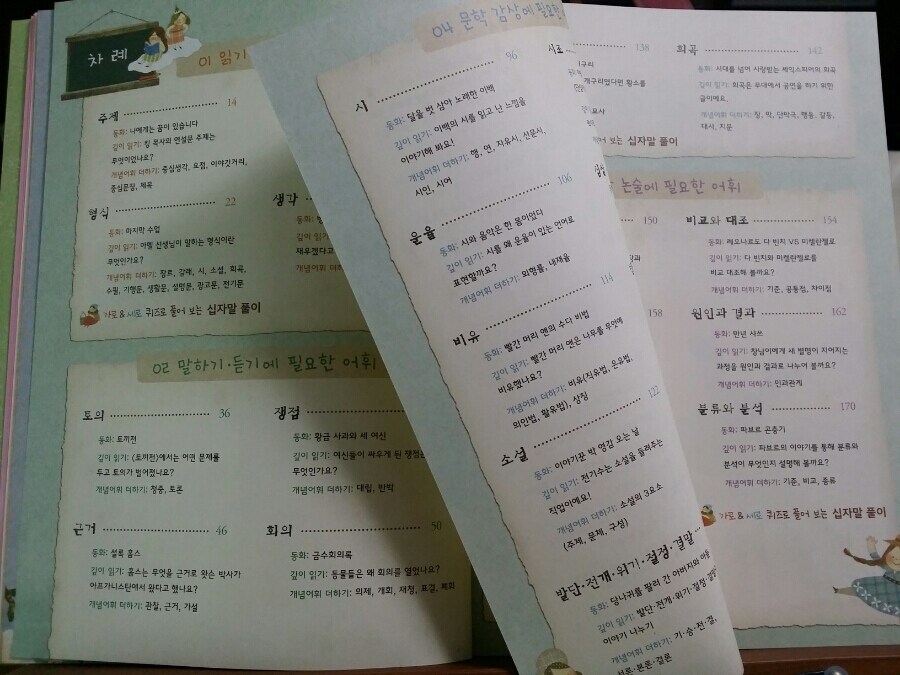 차례
01 읽기
주제 14
동화: 나에게는 꿈이 있습니다
깊이 읽기: 킹 목사의 연설문 주제는
무엇이었나요?
개념어휘 더하기: 중심생각, 요점, 이야깃거리,
중심문장, 제목
형식 22
동화: 마지막 수업
깊이 읽기: 아멜 선생님이 말하는 형식이란
무엇인가요?
개념어휘 더하기: 장르, 갈래, 시, 소설, 희곡,
수필, 기행문, 생활문, 설명문, 광고문, 전기문
생각
동화:
깊이 읽기:
재우겠다고
개념어휘
가로&세로 퀴즈로 풀어 보는 십자말 풀이
02 말하기·듣기에 필요한 어휘
토의 36
동화: 토끼전
깊이 읽기: 〈토끼전〉에서는 어떤 문제를
두고 토의가 벌어졌나요?
개념어휘 더하기: 정중, 토론
쟁점
동화: 황금 사과와 세 여신
깊이 읽기: 여신들이 싸우게 된 쟁점은
무엇인가요?
개념어휘 더하기: 대립, 반박
근거 46
동화: 셜록 홈스
깊이 읽기: 홈스는 무엇을 근거로 왓슨 박사가
아프가니스탄에서 왔다고 했나요?
개념어휘 더하기: 관찰, 근거, 가설
회의 50
동화: 금수회의록
깊이 읽기: 동물들은 왜 회의를 열었나요?
개념어휘 더하기: 의제, 개회, 재청, 표결, 폐회
04 문학 감상에 필요한
시 96
동화: 달을 벗 삼아 노래한 이백
깊이 읽기: 이백의 시를 읽고 난 느낌을
이야기해 봐요!
개념어휘 더하기: 행, 연, 자유시, 산문시,
시인, 시어
운율 106
동화: 시와 음악은 한 몸이었다
깊이 읽기: 시를 왜 운율이 있는 언어로
표현할까요?
개념어휘 더하기: 외형률, 내재율
비유 114
동화: 빨간 머리 앤의 수다 비법
깊이 읽기: 빨간 머리 앤은 나무를 무엇에
비유했나요?
개념어휘 더하기: 비유(직유법, 은유법,
의인법, 활유법), 상징
소설 122
동화: 이야기꾼 박 영감 오는 날
깊이 읽기: 전기수는 소설을 들려주는
직업이에요!
개념어휘 더하기: 소설의 3요소
(주제, 문체, 구성)
발단·전개·위기·절정·결말
동화: 당나귀를 팔러 간 아버지와 아들
깊이 읽기: 발단·전개·위기·절정·결말
이야기 나누기
개념어휘 더하기: 기·승·전·결,
서론·본론·결론
138
개구리였다면 황소를
묘사
보는 십자말 풀이
희곡 142
동화: 시대를 넘어 사랑받는 셰익스피어의 희곡
깊이 읽기: 희곡은 무대에서 공연을 하기 위한
글이에요.
개념어휘 더하기: 장, 막, 단막극, 행동, 갈등,
대사, 지문
논술에 필요한 어휘
150
158
비교와 대조 154
동화: 레오나르도 다 빈치 VS 미켈란젤로
깊이 읽기: 다 빈치와 미켈란젤로를
비교 대조해 볼까요?
개념어휘 더하기: 기준, 공통점, 차이점
원인과 결과 162
동화: 만년 샤쓰
깊이 읽기: 창남이에게 새 별명이 지어지는
과정을 원인과 결과로 나누어 볼까요?
개념어휘 더하기: 인과관계
분류와 분석 170
동화: 파브르 곤충기
깊이 읽기: 파브르의 이야기를 통해 분류와
분석이 무엇인지 설명해 볼까요?
개념어휘 더하기: 기준, 비교, 종류
가로&세로 퀴즈로 풀어 보는 십자말 풀이